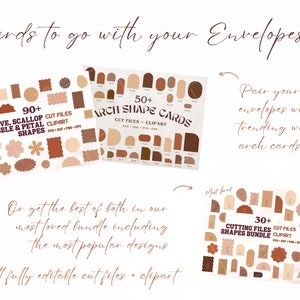 ards to go with your Envelopes
90+
VE, SCALLOP
BLE & PETAL
SHAPES
CUT FILES
CLIPART
50+
ARCH SHAPE CARDS
CUT FILES + CLIPART
SVG + DXF + PNG + EPS
Pair your
envelopes wi
trending w
arch cards
Or get the best of both in our
most loved bundle including
the most popular designs
ll fully editable cut files + clipart
Most loved
30+
CUTTING FILES
SHAPES BUNDLE
CUT FILES
CLIPART